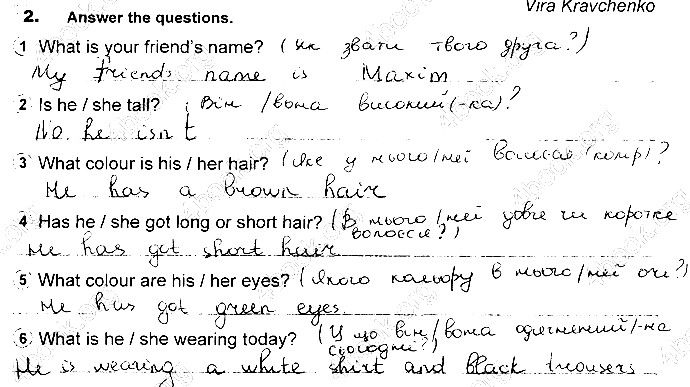 Vira Kravchenko
2. Answer the questions.
1 What is your friend's name? (Як звати твого друга?)
My friends name is Maxim
2 Is he / she tall? (Він / вона високий (-ка)?
No. he isn t
3 What colour is his / her hair? (Яке у нього/неї волосся (колір)?
He has a brown hair
4 Has he / she got long or short hair? (В нього / неї довге чи коротке
волосся?)
He has got short hair
5 What colour are his / her eyes? (Якого кольору в нього/неї очі?)
He has got green eyes.
6 What is he / she wearing today? (У що він/вона одягнений/-на
сьогодні?)
He is wearing a white shirt and black trousers
4book.org